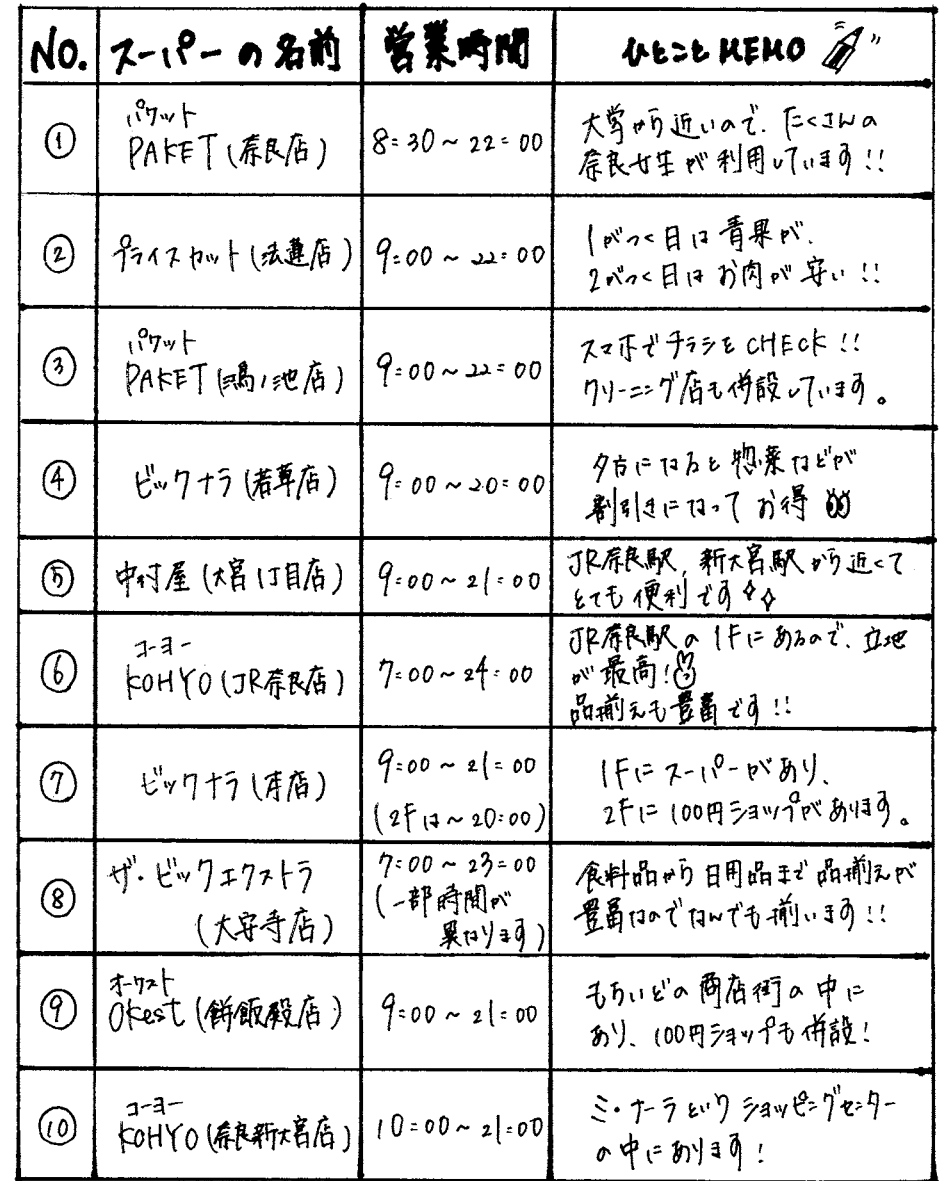 NO. スーパーの名前 営業時間 ひとことMEMO
①
パケット
PAKET(奈良店)
8:30~22:00
大学から近いので、たくさんの
奈良女生が利用しています!!
②
プライスカット(法蓮店)
9:00~22:00
1がつく日は青果が、
2がつく日はお肉が安い!!
③
パケット
PAKET(鴻ノ池店)
9:00~22:00
スマホでチラシをCHECK!!
クリーニング店も併設しています。
④
ビックナラ(若草店)
9:00~20:00
夕方になると惣菜などが
割引きになってお得
⑤
中村屋(大宮1丁目店)
9:00~21:00
JR奈良駅、新大宮駅から近くて
とても便利です
⑥
コーヨー
KOHYO(JR奈良店)
7:00~24:00
JR奈良駅の1Fにあるので、立地
が最高!
品揃えも豊富です!!
⑦
ビックナラ(本店)
9:00~21:00
(2Fは~20:00)
1Fにスーパーがあり、
2Fに100円ショップがあります。
⑧
ザ・ビックエクストラ
(大安寺店)
7:00~23:00
(一部時間が
異なります)
食料品から日用品まで品揃えが
豊富なのでなんでも揃います!!
⑨
オーケスト
Okest(餅飯殿店)
9:00~21:00
もちいどの商店街の中に
あり、100円ショップも併設!
⑩
コーヨー
KOHYO(奈良新大宮店)
10:00~21:00
ミ・ナーラというショッピングセンター
の中にあります!